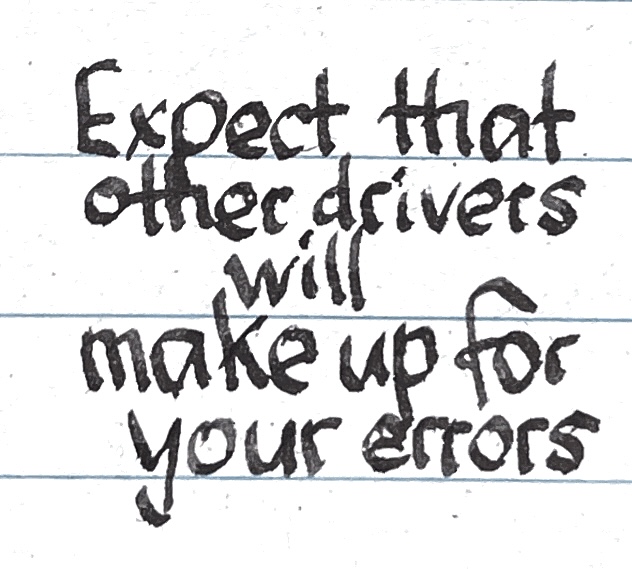 Expect that
other drivers
will
make up for
your errors